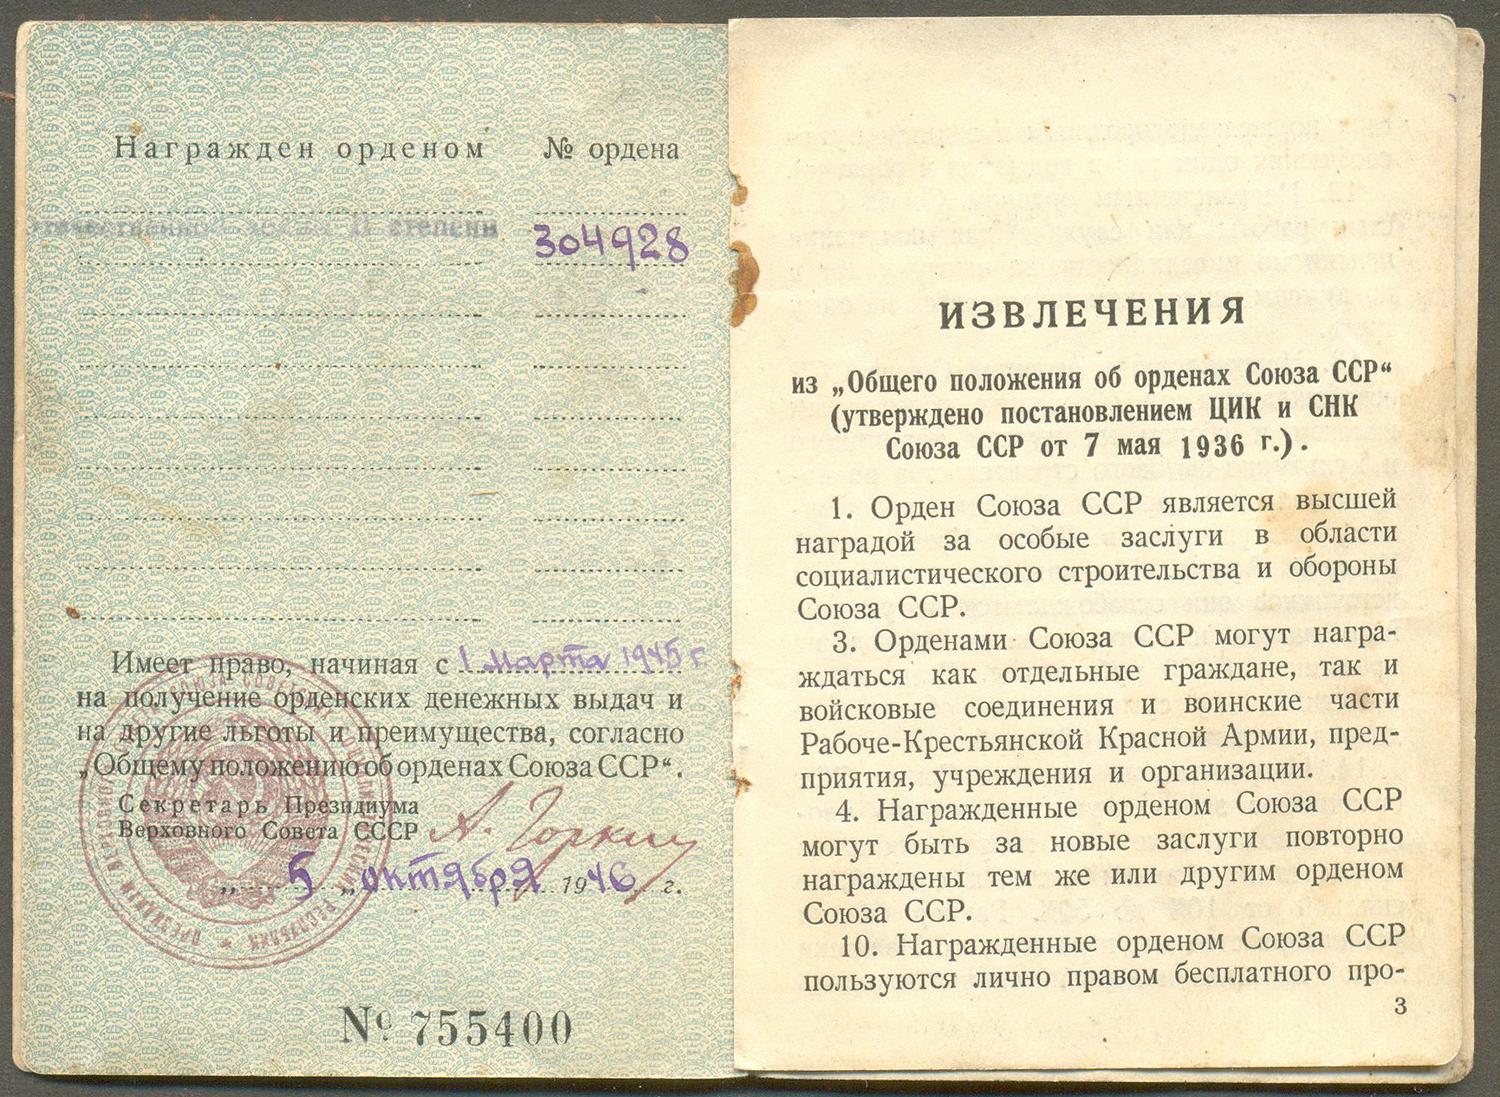 Награжден орденом № ордена
II степени 304928
Имеет право, начиная с 1 марта 1945 г.
на получение орденских денежных выдач и
на другие льготы и преимущества, согласно
„Общему положению об орденах Союза ССР“.
Секретарь Президиума
Верховного Совета СССР А. Горкин
„5„ октября 1946 г.
№ 755400
ИЗВЛЕЧЕНИЯ
из „Общего положения об орденах Союза ССР“
(утверждено постановлением ЦИК и СНК
Союза ССР от 7 мая 1936 г.).
1. Орден Союза ССР является высшей
наградой за особые заслуги в области
социалистического строительства и обороны
Союза ССР.
3. Орденами Союза ССР могут награ-
ждаться как отдельные граждане, так и
войсковые соединения и воинские части
Рабоче-Крестьянской Красной Армии, пред-
приятия, учреждения и организации.
4. Награжденные орденом Союза ССР
могут быть за новые заслуги повторно
награждены тем же или другим орденом
Союза ССР.
10. Награжденные орденом Союза ССР
пользуются лично правом бесплатного про-
3